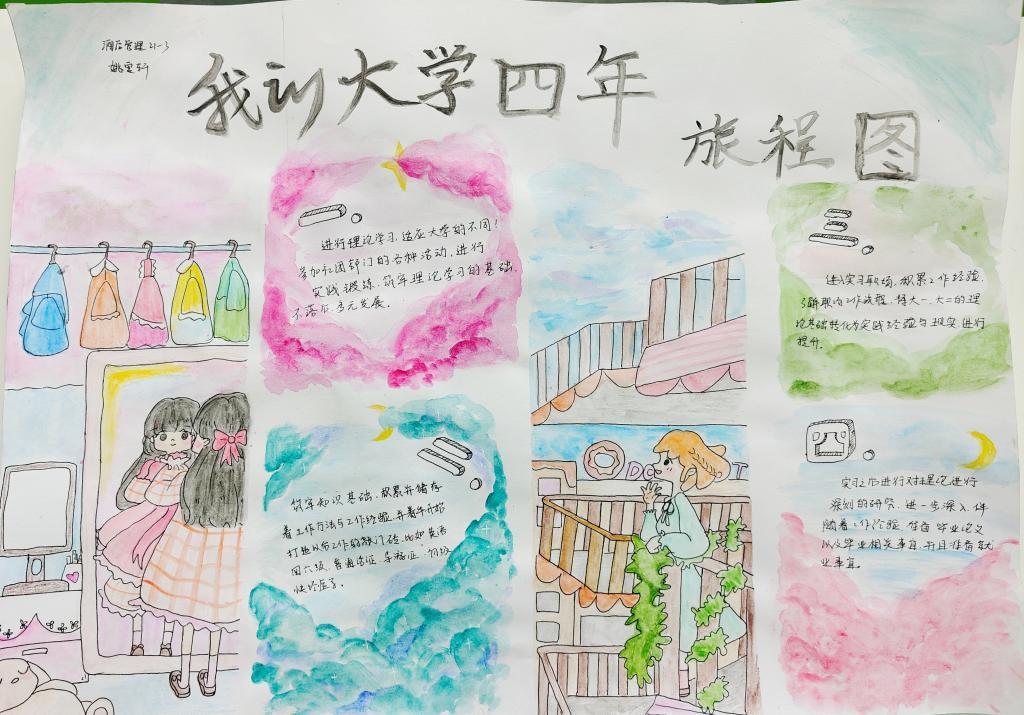 酒店管理21-3
姚雯轩
我的大学四年
旅程图
一.
进行理论学习,适应大学的不同!
参加社团部门的各种活动,进行
实践锻炼,筑牢理论学习的基础,
不落后,多元发展。
二.
筑牢知识基础,积累并储存
着工作方法与工作经验,并着手开始
打造以后工作的敲门砖,比如英语
四六级,普通话证,导游证,初级
会计证了。
三.
进入实习职场,积累工作经验,
了解职内工作流程,将大一、大二的理
论基础转化为实践经验与现实进行
提升。
四.
实习之后进行对理论进行
深刻的研究,进一步深入,伴
随着工作经验,准备毕业论文
以及毕业相关事宜,并且准备就
业事宜。
DO
T